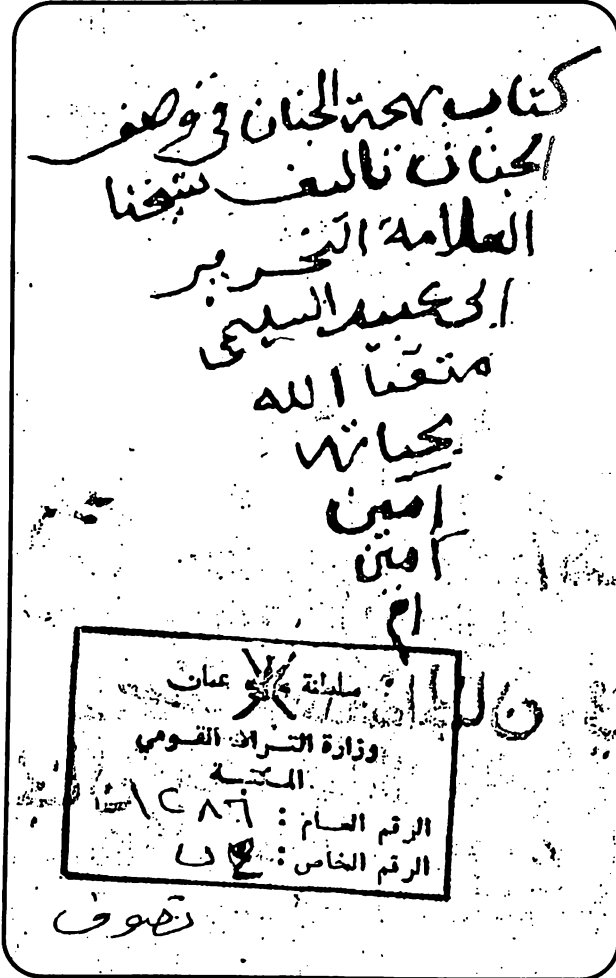 كتاب بهجة الجنان في وصف
الجنان تاليف شيخنا
العلامة النحرير
ابي عبيد السليمي
متعنا الله
بحياته
امين
امين
ام
سلطنة عمان
وزارة التراث القومي
المكتبة
الرقم العام : ١٢٨٦
الرقم الخاص :
تصوف